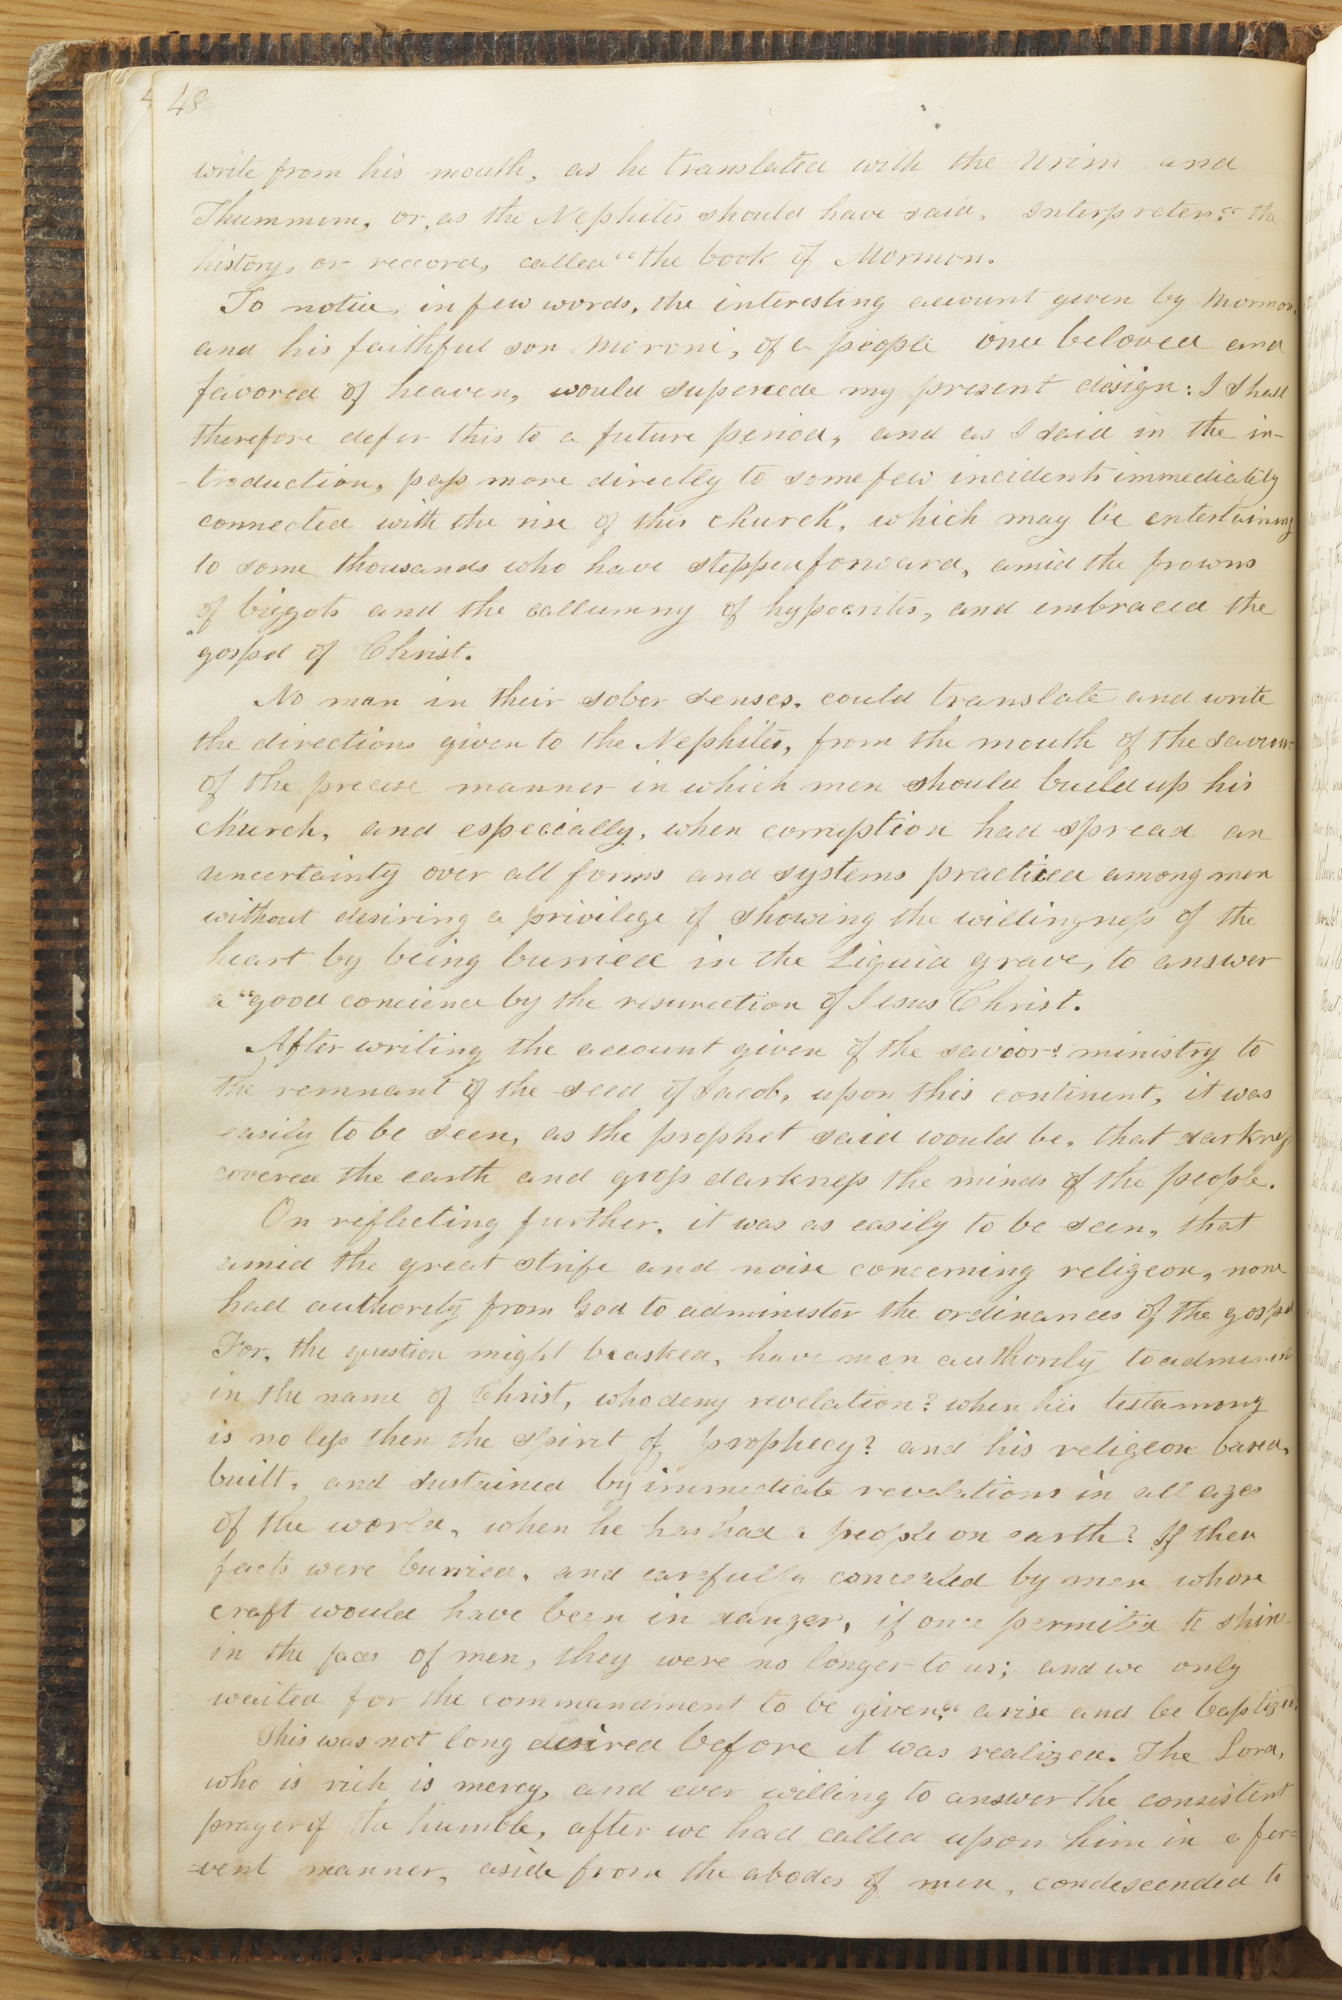 48
write from his mouth, as he translated with the Urim and
Thummim, or, as the Nephites should have said, Interpreters," the
history, or reccord, called "the book of Mormon.
To notice, in few words, the interesting account given by Mormon,
and his faithful son Moroni, of a people once beloved and
favored of heaven, would supercede my present design: I shall
therefore defer this to a future period, and as I said in the in-
-troduction, pass more directly to some few incidents immediately
connected with the rise of this church, which may be entertaining
to some thousands who have stepped forward, amid the frowns
of biggots and the callumny of hypocrites, and embraced the
gospel of Christ.
No man in their sober senses, could translate and write
the directions given to the Nephites, from the mouth of the saviour
of the precise manner in which men should build up his
church, and especially, when corruption had spread an
uncertainty over all forms and systems practiced among men
without desiring a privilege of showing the willingness of the
heart by being burried in the Liquid grave, to answer
a "good concience by the resurection of Jesus Christ.
After writing the account given of the saviors ministry to
the remnant of the seed of Jacob, upon this continent, it was
easily to be seen, as the prophet said would be, that darkness
covered the earth and gross darkness the minds of the people.
On reflecting further, it was as easily to be seen, that
amid the great strife and noise concerning religeon, none
had authority from God to administer the ordinances of the gospel
For, the question might be asked, have men authority to administer
in the name of Christ, who deny revelation? when his testamony
is no less then the spirit of prophecy? and his religeon based,
built, and sustained by immediate revelations in all ages
of the world, when he has had a people on earth? If these
facts were burried, and carefully concealed by men whose
craft would have been in danger, if once permited to shine
in the faces of men, they were no longer to us; and we only
waited for the commandment to be given," arise and be baptized.
This was not long desired before it was realized. The Lord,
who is rich is mercy, and ever willing to answer the consistent
prayer of the humble, after we had called upon him in a fer=
=vent manner, aside from the abodes of men, condescended to